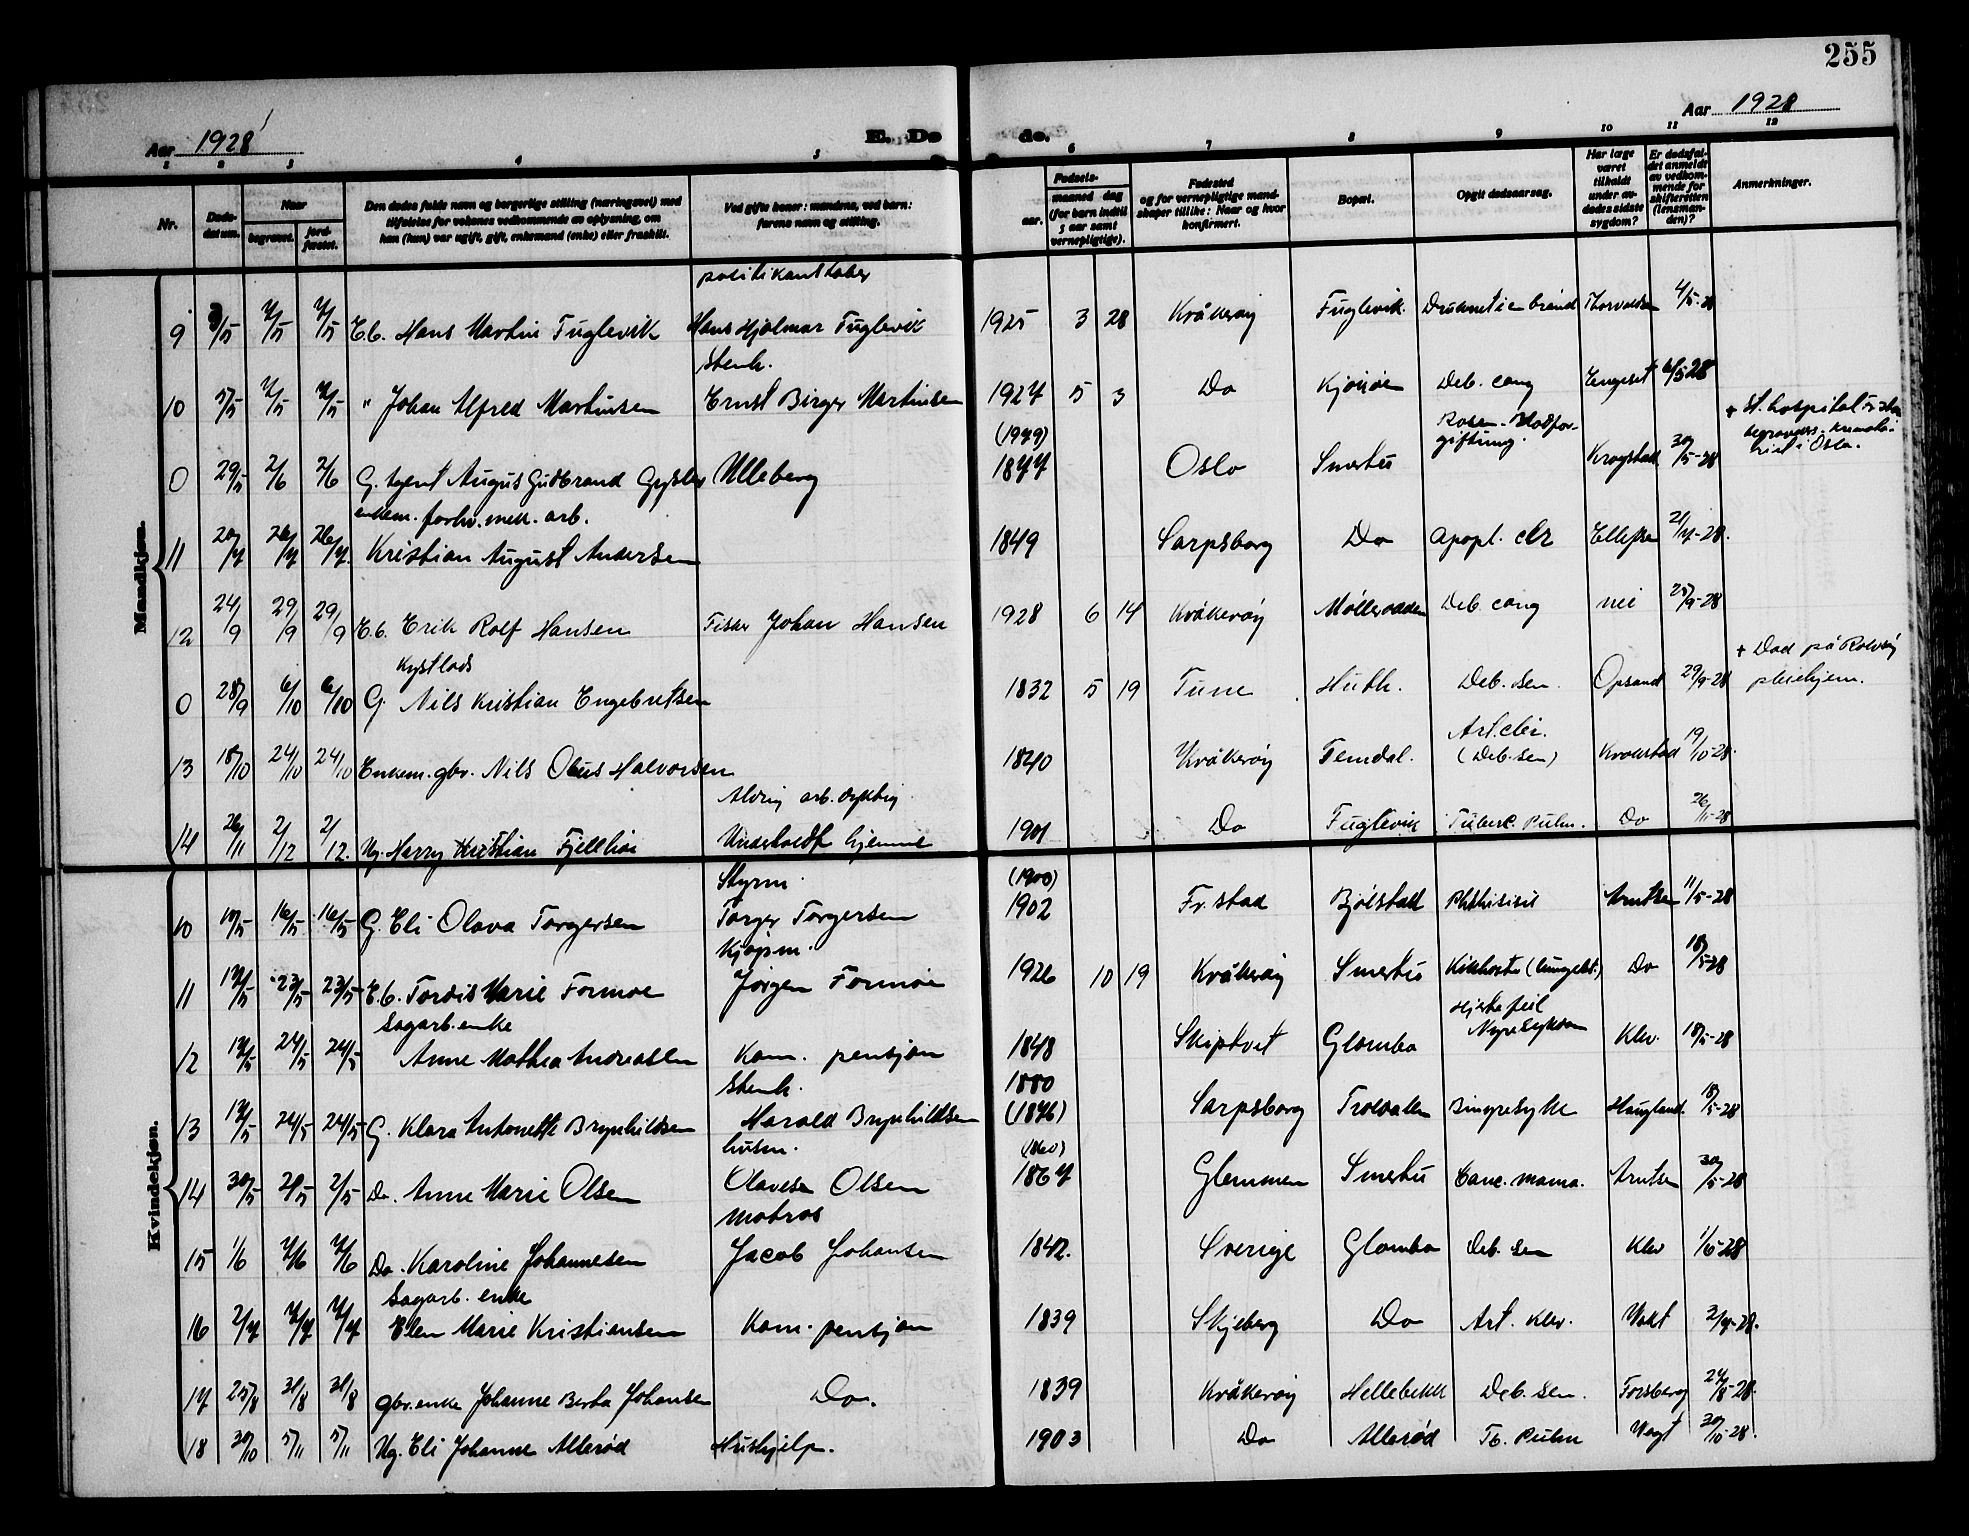 255
Aar 1928
E. Døde.
Aar 1928
1 2 3 4 5 6 7 8 9 10 11 12
Nr.
Døds-datum.
Naar
begravet.
jord-fæstet.
Den dødes fulde navn og borgerlige stilling (næringsvei) med tilføielse for voksnes vedkommende av oplysning, om han (hun) var ugift, gift, enkemand (enke) eller fraskilt.
Ved gifte koner: mandens, ved barn: farens navn og stilling.
Fødsels-
aar.
maaned dag
(for barn indtil 5 aar samt vernepligtige).
Fødested
og for vernepligtige mandskaper tillike: Naar og hvor konfirmert.
Bopæl.
Opgit dødsaarsag.
Har læge været tilkaldt under avdødes sidste sygdom?
Er dødsfaldet anmeldt av vedkommende for skifteretten (lensmanden)?
Anmerkninger.
Mandkjøn.
politikonstabel
9 3/5 7/5 7/5 E.b. Hans Martin Fuglevik Hans Hjalmar Fuglevik 1925 3 28 Kråkerøy Fuglevik Thorvaldsen 4/5-28
Stenh.
10 5/5 7/5 7/5 " Johan Alfred Martinsen Ernst Birger Martinsen 1927 5 3 Do Kjønøe Deb. cong Engeset 6/5 28
(1879) Rosen - Blodforgiftning. + St. hospital Fr.stad
0 29/5 2/6 2/6 G. Agent August Gudbrand Gysler Ulleberg 1877 Oslo Smertu Krogstad 30/5-28 begravers. krematoriet i Oslo.
enkem. forhv. mek. arb.
11 20/7 26/7 26/7. Kristian August Andersen 1849 Sarpsborg Do Apopl. cbr Ellefsen 21/7-28.
12 24/9 29/9 29/9 E.b. Erik Rolf Hansen Fisker Johan Hansen 1928 6 14 Kråkerøy Møllerodden Deb. cong nei 25/9-28
Kystlods + Død på Rolvsøy pleiehjem.
0 28/9 6/10 6/10 G. Nils Kristian Engebretsen 1832 5 19 Tune Huth. Deb. sen. Opsand 29/9-28
Art. cbr.
13 18/10 24/10 24/10 Enkem. gbr. Nils Olaus Halvorsen 1840 Kråkerøy Femdal. (Deb. sen) Krogstad 19/10-28.
Aldrig arb.dyktig
14 26/11 2/12 2/12. Ug. Harry Kristian Fjellhøi Underholdt hjemme 1901 Do Fuglevik Tuberc. Pulm. Do 26/11-28
Kvindekjøn.
Styrm. (1900)
10 10/5 16/5 16/5 G. Eli Olava Torgersen Torger Torgersen 1902 Fr.stad Bjølstad Phthisisis Arntsen 11/5-28
Kjøpm.
11 17/5 23/5 23/5 E.b. Tordis Marie Formoe Jørgen Formoe 1926 10 19 Kråkerøy Smertu Kikhoste (lungebet.) Do 18/5-28
Sagarb.enke Hjertefeil
12 17/5 24/5 24/5 Anne Mathea Andreassen Kom. pensjon 1848 Skiptvet Glombo Nyresykdom Klev. 18/5-28
Stenh. 1880
13 17/5 24/5 24/5 G. Klara Antonette Brynhildsen Harald Brynhildsen (1876) Sarpsborg Trolldalen Binyresyke Haugland. 18/5-28
husm. (1860)
14 30/5 2/5 2/5 Do. Anne Marie Olsen Olavesen Olsen 1867 Glemmen Smertu Canc. mama. Arntsen 30/5-28
matros
15 1/6 7/6 7/6 Do. Karoline Johannesen Jacob Johansen 1842. Sverige Glombo Deb. sen Klev 1/6-28
Sagarb. enke
16 2/7 7/7 7/7 Elen Marie Kristiansen Kom. pensjon 1839 Skjeberg Do Art. Klev. Vokt 3/7-28.
17 25/8 31/8 31/8 gbr.enke Johanne Berta Johansen Do. 1839 Kråkerøy Hellebekk Deb. sen. Forsberg 27/8-28.
18 30/10 5/11 5/11 Ug. Eli Johanne Allerød Hushjelp. 1903 Do Allerød Tb. Pulm Vogt 30/10-28.